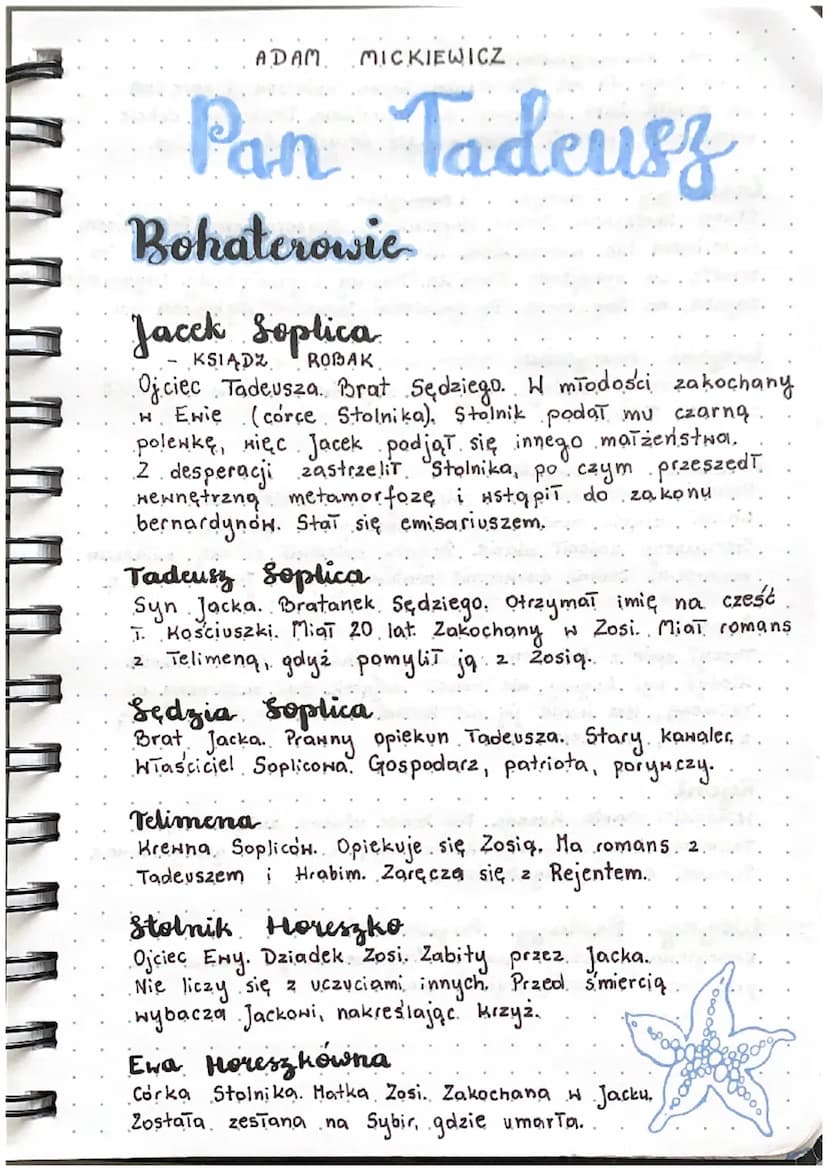 ADAM MICKIEWICZ
Pan Tadeusz
Bohaterowie
Jacek Soplica
- KSIĄDZ ROBAK
Ojciec Tadeusza. Brat Sędziego. W młodości zakochany
w Ewie (córce Stolnika). Stolnik podał mu czarną
polewkę, więc Jacek podjął się innego małżeństwa.
Z desperacji zastrzelił Stolnika, po czym przeszedł
wewnętrzną metamorfozę i wstąpił do zakonu
bernardynów. Stał się emisariuszem.
Tadeusz Soplica
Syn Jacka. Bratanek Sędziego. Otrzymał imię na cześć
T. Kościuszki. Miał 20 lat. Zakochany w Zosi. Miał romans
z Telimeną, gdyż pomylił ją z Zosią.
Sędzia Soplica
Brat Jacka. Prawny opiekun Tadeusza. Stary kawaler,
właściciel Soplicowa. Gospodarz, patriota, porywczy.
Telimena
Krewna Sopliców. Opiekuje się Zosią. Ma romans z
Tadeuszem i Hrabim. Zaręcza się z Rejentem.
Stolnik Horeszko
Ojciec Ewy. Dziadek Zosi. Zabity przez Jacka.
Nie liczy się z uczuciami innych. Przed śmiercią
wybacza Jackowi, nakreślając krzyż.
Ewa Horeszkówna
Córka Stolnika. Matka Zosi. Zakochana w Jacku.
Została zesłana na Sybir, gdzie umarła.